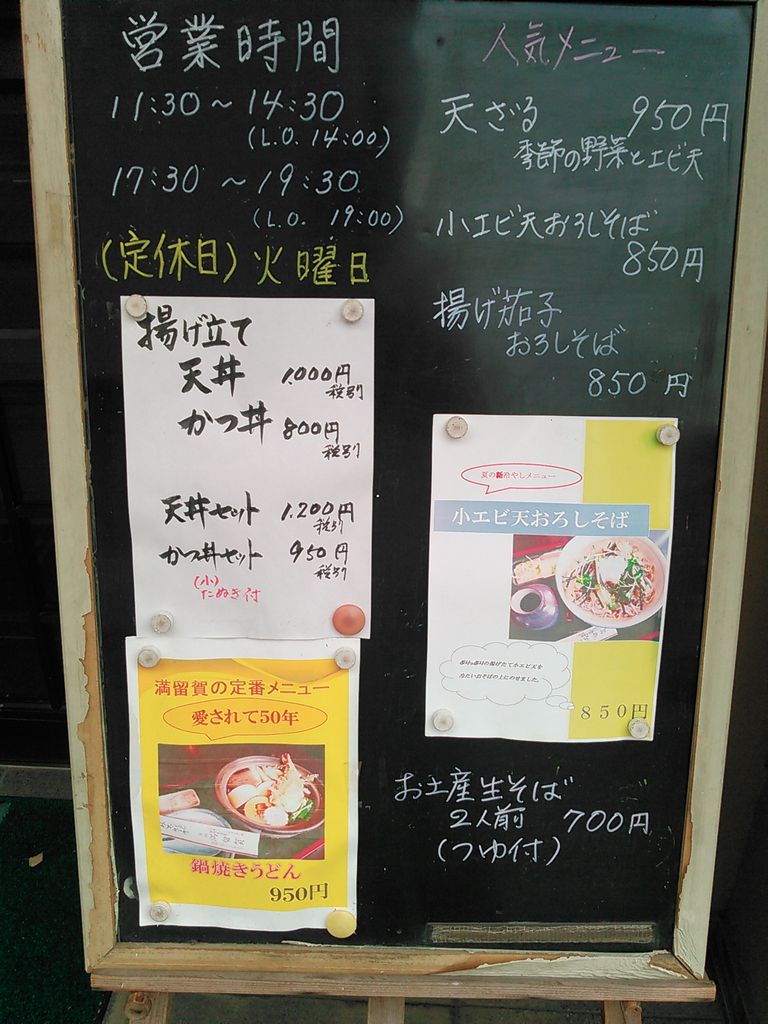 営業時間
11:30～14:30
(L.O. 14:00)
17:30～19:30
(L.O. 19:00)
(定休日)火曜日
揚げ立て
天丼 1.000円
税別
かつ丼 800円
税別
天丼セット 1.200円
税別
かつ丼セット 950円
税別
(小)
たぬき付
満留賀の定番メニュー
愛されて50年
鍋焼きうどん
950円
人気メニュー
天ざる 950円
季節の野菜とエビ天
小エビ天おろしそば
850円
揚げ茄子
おろしそば
850円
夏の新冷やしメニュー
小エビ天おろしそば
の揚げたて小エビ天を
冷たいおそばの上にのせました。
850円
お土産生そば
2人前 700円
(つゆ付)